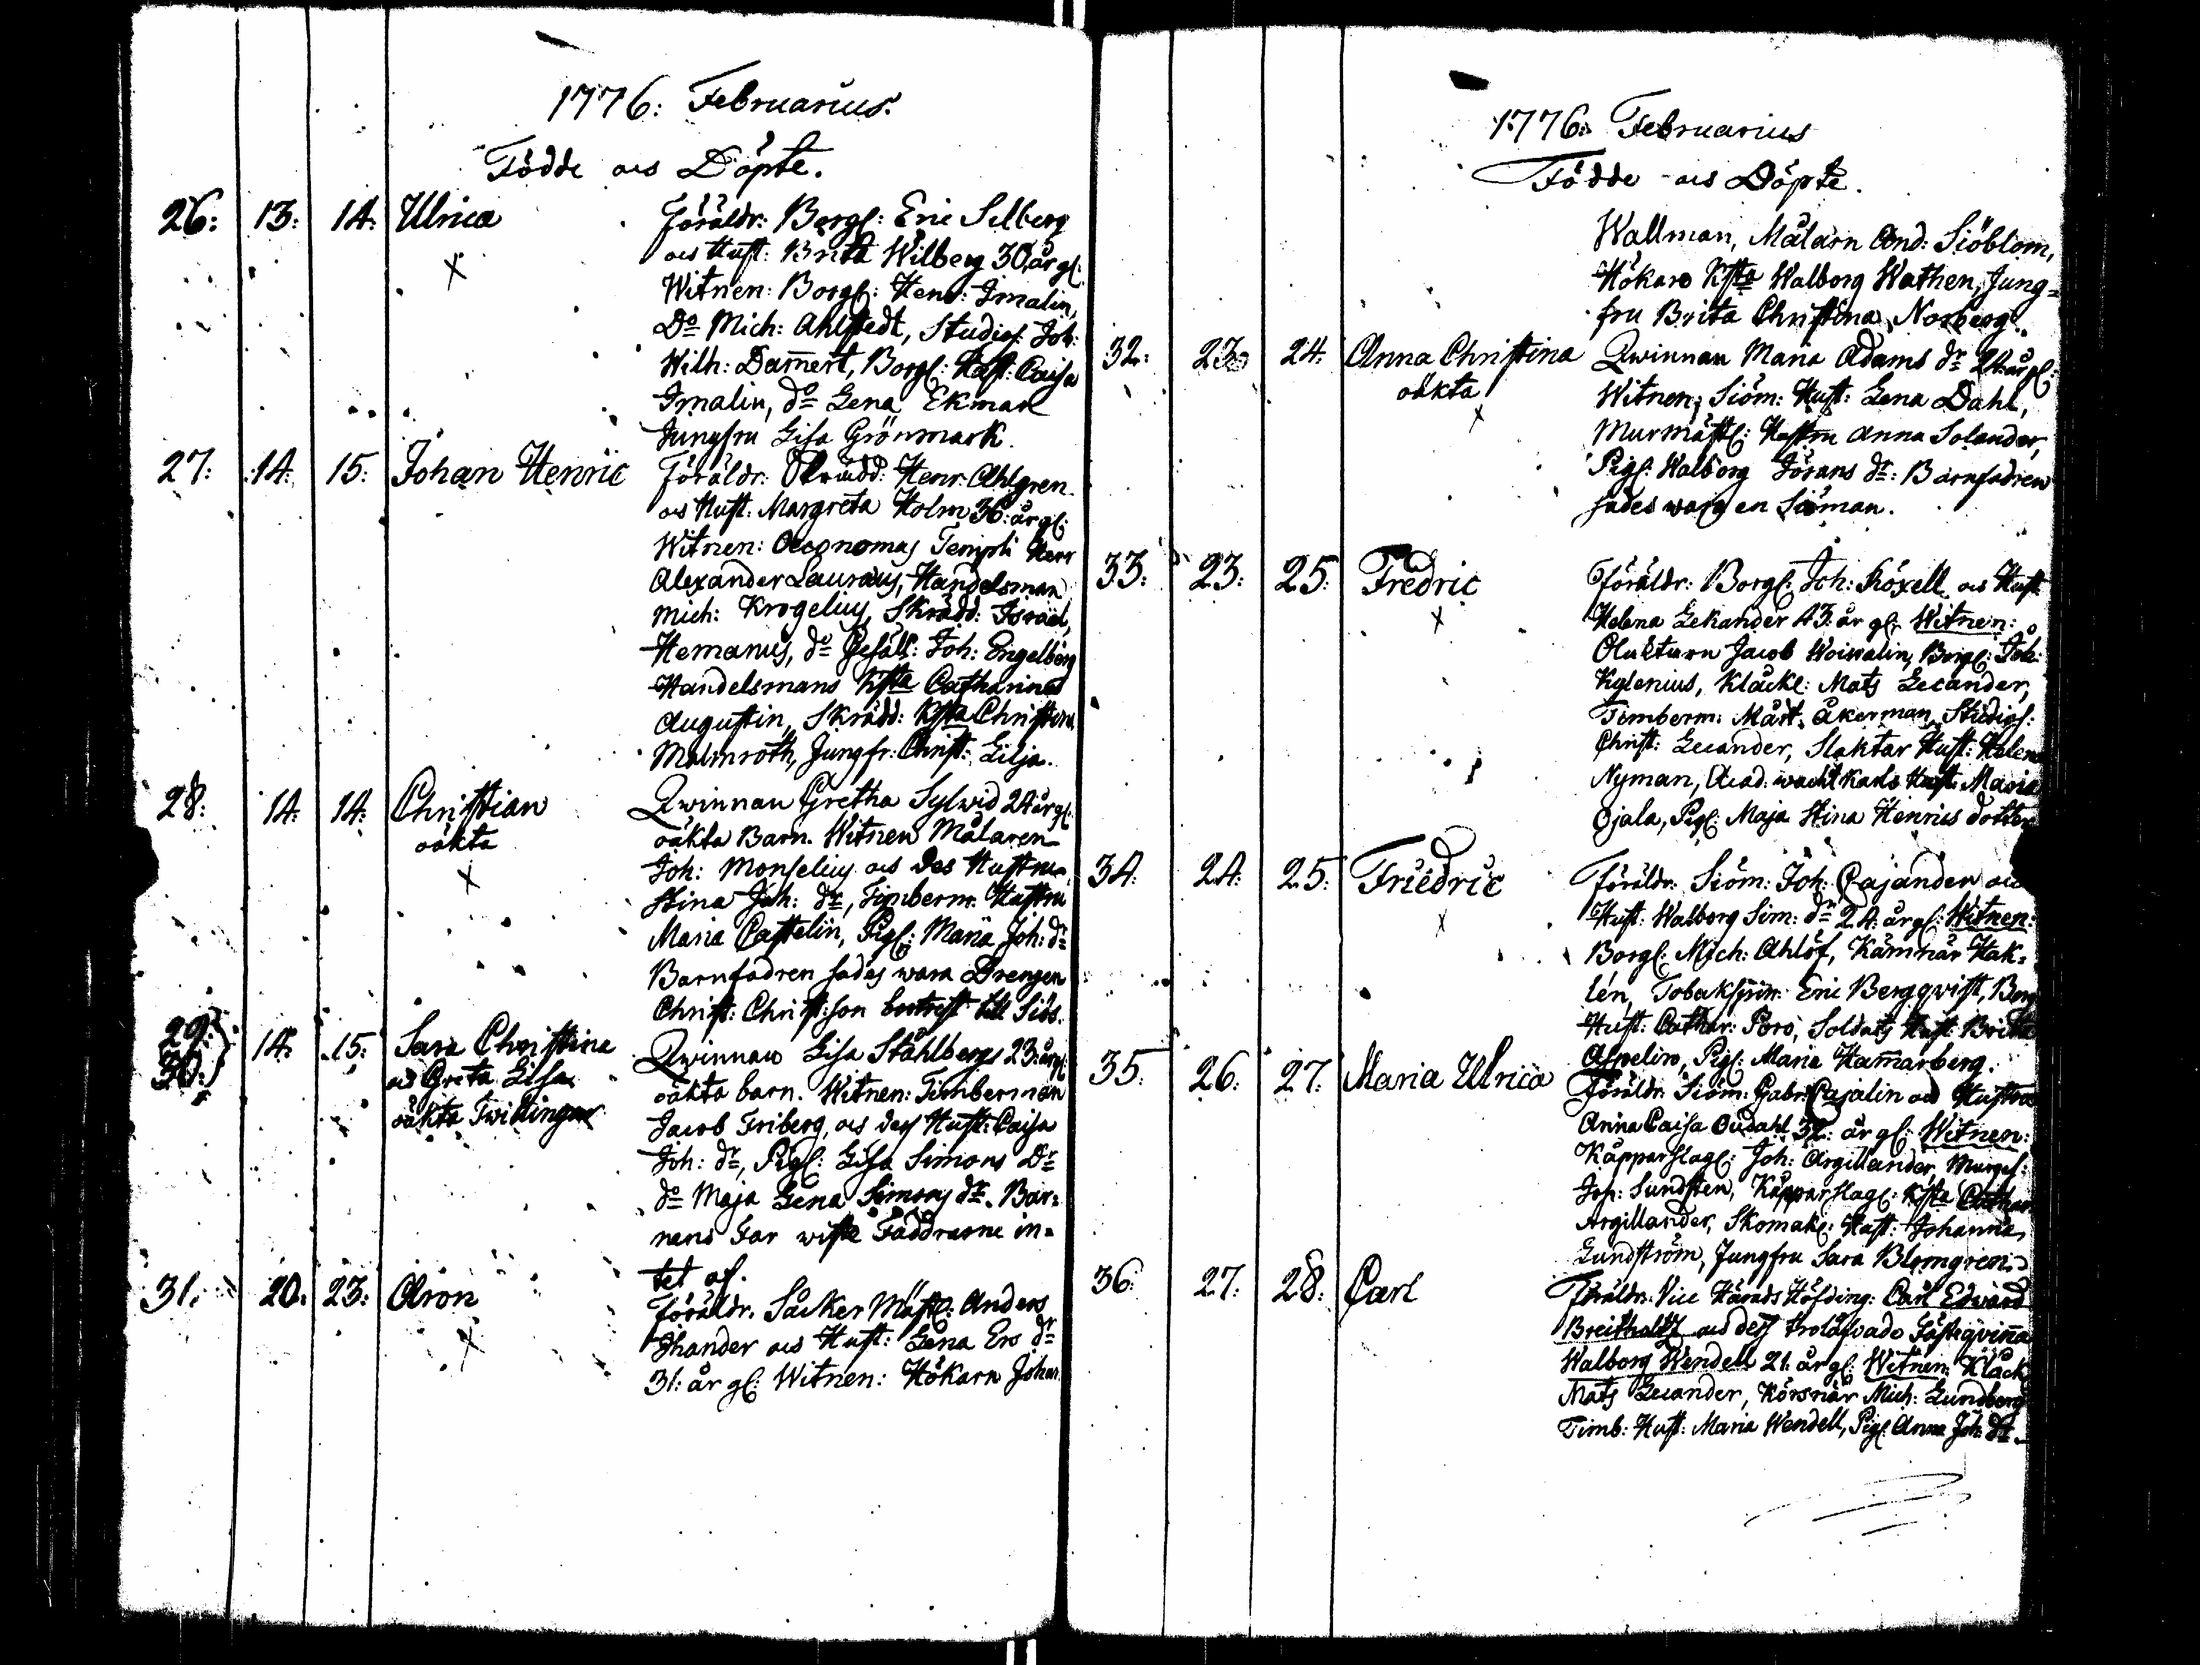 1776: Februarius.
Födde och Döpte.
26: 13: 14: Ulrica Föräldr: Borgl: Eric Selberg
och Hust: Brita Wilberg 30 år gl:
Witnen: Borgl: Henr: Imalin,
Do Mich: Ahlstedt, Studios: Joh:
Wilh: Dam̄ert, Borgl: Hust: Caisa
Imalin, do Lena Ekman
Jungfru Lisa Grönmark.
27: 14: 15: Johan Henric Föräldr: Henr: Ahlgren
och Hust: Margreta Holm 36: år gl:
Witnen: Oeconomus Templi Herr
Alexander Lauraeus, Handelsman
Mich: Krogelius, Skrädd: Israel
Hemanus, do Gesäll: Joh: Engelberg
Handelsmans K:sta Catharina
Augustin, Skrädd: K:sta Christina
Malmroth, Jungfr: Christ: Lilja.
28: 14: 14: Christian Qwinnan Gretha Sylwid 24 år gl:
oäkta oäkta Barn. Witnen Målaren
Joh: Monselius och Des Hustru
Stina Joh: dr, Timberm: Hustru
Maria Castelin, Pigl: Maria Joh: dr
Barnfadren sades wara Drengen
Christ: Christ:son bortrest till Siös.
29: 14: 15: Sara Christina Qwinnan Lisa Ståhlberg 23: år gl:
30: och Greta Lisa oäkta barn. Witnen: Timberman
oäkta Twillingar Jacob Friberg, och des Hust: Caisa
Joh: dr, Pigl: Lisa Simons Dr
do Maja Lena Simons dr. Bar=
nens Far wiste Faddrarne in=
tet af.
31: 20: 23: Aron Föräldr: Säcker Mäst: Anders
Thander och Hust: Lena Ers dr
31: år gl: Witnen: Hökarn Johan
1776: Februarius
Födde och Döpte.
Wallman, Målarn And: Siöblom,
Hökare K:sta Walborg Wathen, Jung=
fru Brita Christina Norberg.
32: 23: 24: Anna Christina Qwinnan Maria Adams dr 24: år gl:
oäkta Witnen: Siöm: Hust: Lena Dahl,
Murmästl: Hustru Anna Solander,
Pigl: Walborg Jörans dr: Barnfadren
sades wara en Siöman.
33: 23: 25: Fredric Föräldr: Borgl: Joh: Röxell och Hust
Helena Lekander 43: år gl: Witnen:
Jacob Woiwalin, Borgl: Joh:
Kylenius, Klåckl: Mats Lecander,
Timberm: Mårt: Åkerman, Studios:
Christ: Lecander, Slaktar Hust: Helena
Nyman, Acad. wacht Karls Hust: Maria
Ojala, Pigl: Maja Stina Henrics dotter
34: 24: 25: Friedric Föräldr: Siöm: Joh: Cajander och
Hust: Walborg Sim: dr 24: år gl: Witnen:
Borgl: Mich: Ahlöf, Kämnär Hak=
lén, Eric Bergqwist, Borg
Hust: Cathar: Poro, Soldats Hust: Brita
Aspelin, Pigl: Maria Ham̄arberg.
35: 26: 27: Maria Ulrica Föräldr: Siöm: Gabr: Cajalin och Hustru
Anna Caisa Oudahl 32: år gl: Witnen:
Kåpparslagl: Joh: Argillander, Murgl:
Joh: Sundsten, Kåpparslagl: K:sta Cathar
Argillander, Skomakl: Hust: Johanna
Lundström, Jungfru Sara Blomgren.
36: 27: 28: Carl Föräldr: Vice Härads Höfding: Carl Edward
Breitholtz och des trolåfvade Fästeqvin̄a
Walborg Wendell 21: år gl: Witnen: Klåck
Mats Lecander, Körsnär Mich: Lundberg
Timb: Hust: Maria Wendell, Pigl: Anna Joh: dr